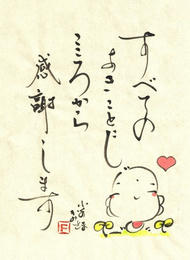 すべての
あることに
こころから
感謝します